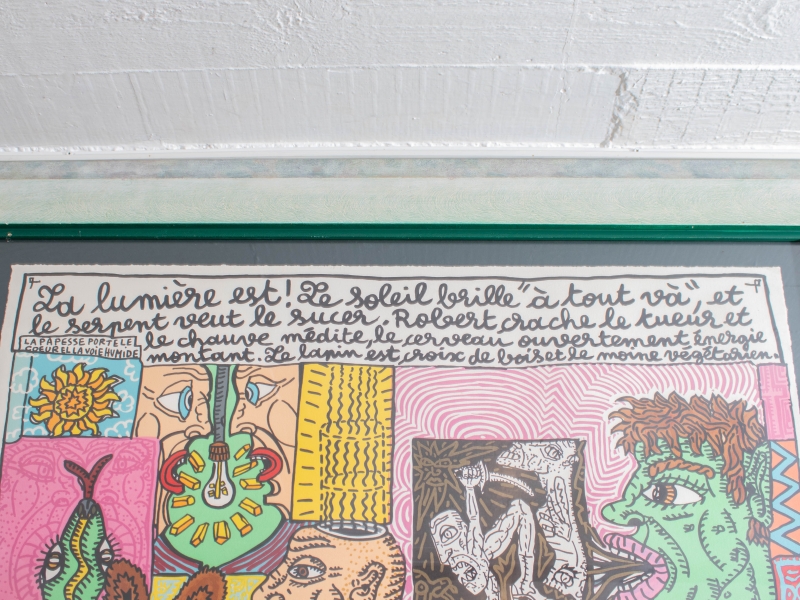 La lumière est! Le soleil brille "à tout và", et
le serpent veut le sucer. Robert crache le tueur et
LA PAPESSE PORTE LE
CŒUR EL LA VOIE HUMIDE
le chauve médite, le cerveau ouvertement énergie
montant. Le lapin est croix de bois et le moine végétarien.